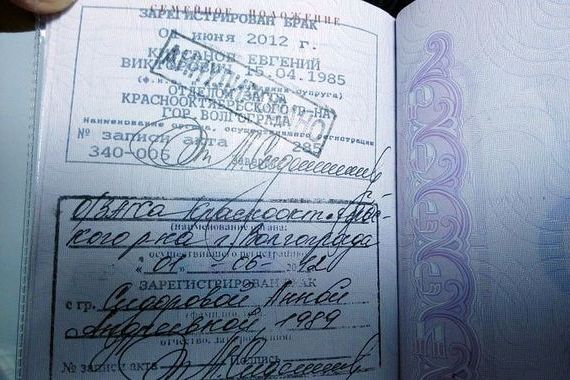 СЕМЕЙНОЕ ПОЛОЖЕНИЕ
ЗАРЕГИСТРИРОВАН БРАК
01 июня 2012 г.
ЕВГЕНИЙ
ВИКТОРОВИЧ 15.04.1985
ОТДЕЛОМ
КРАСНООКТЯБРЬСКОГО Р-НА
ГОР. ВОЛГОГРАДА
наименование органа, осуществившего регистрацию
№ записи акта 285
340-006
ОЗАГСа Краснооктябрь-
кого р-на г. Волгограда
(наименование органа,
осуществившего регистрацию)
"01" - 06 - 2012
ЗАРЕГИСТРИРОВАН БРАК
с гр. Сидоровой Анной
Андреевной, 1989
отчество, дата рождения)
№ записи акта Подпись